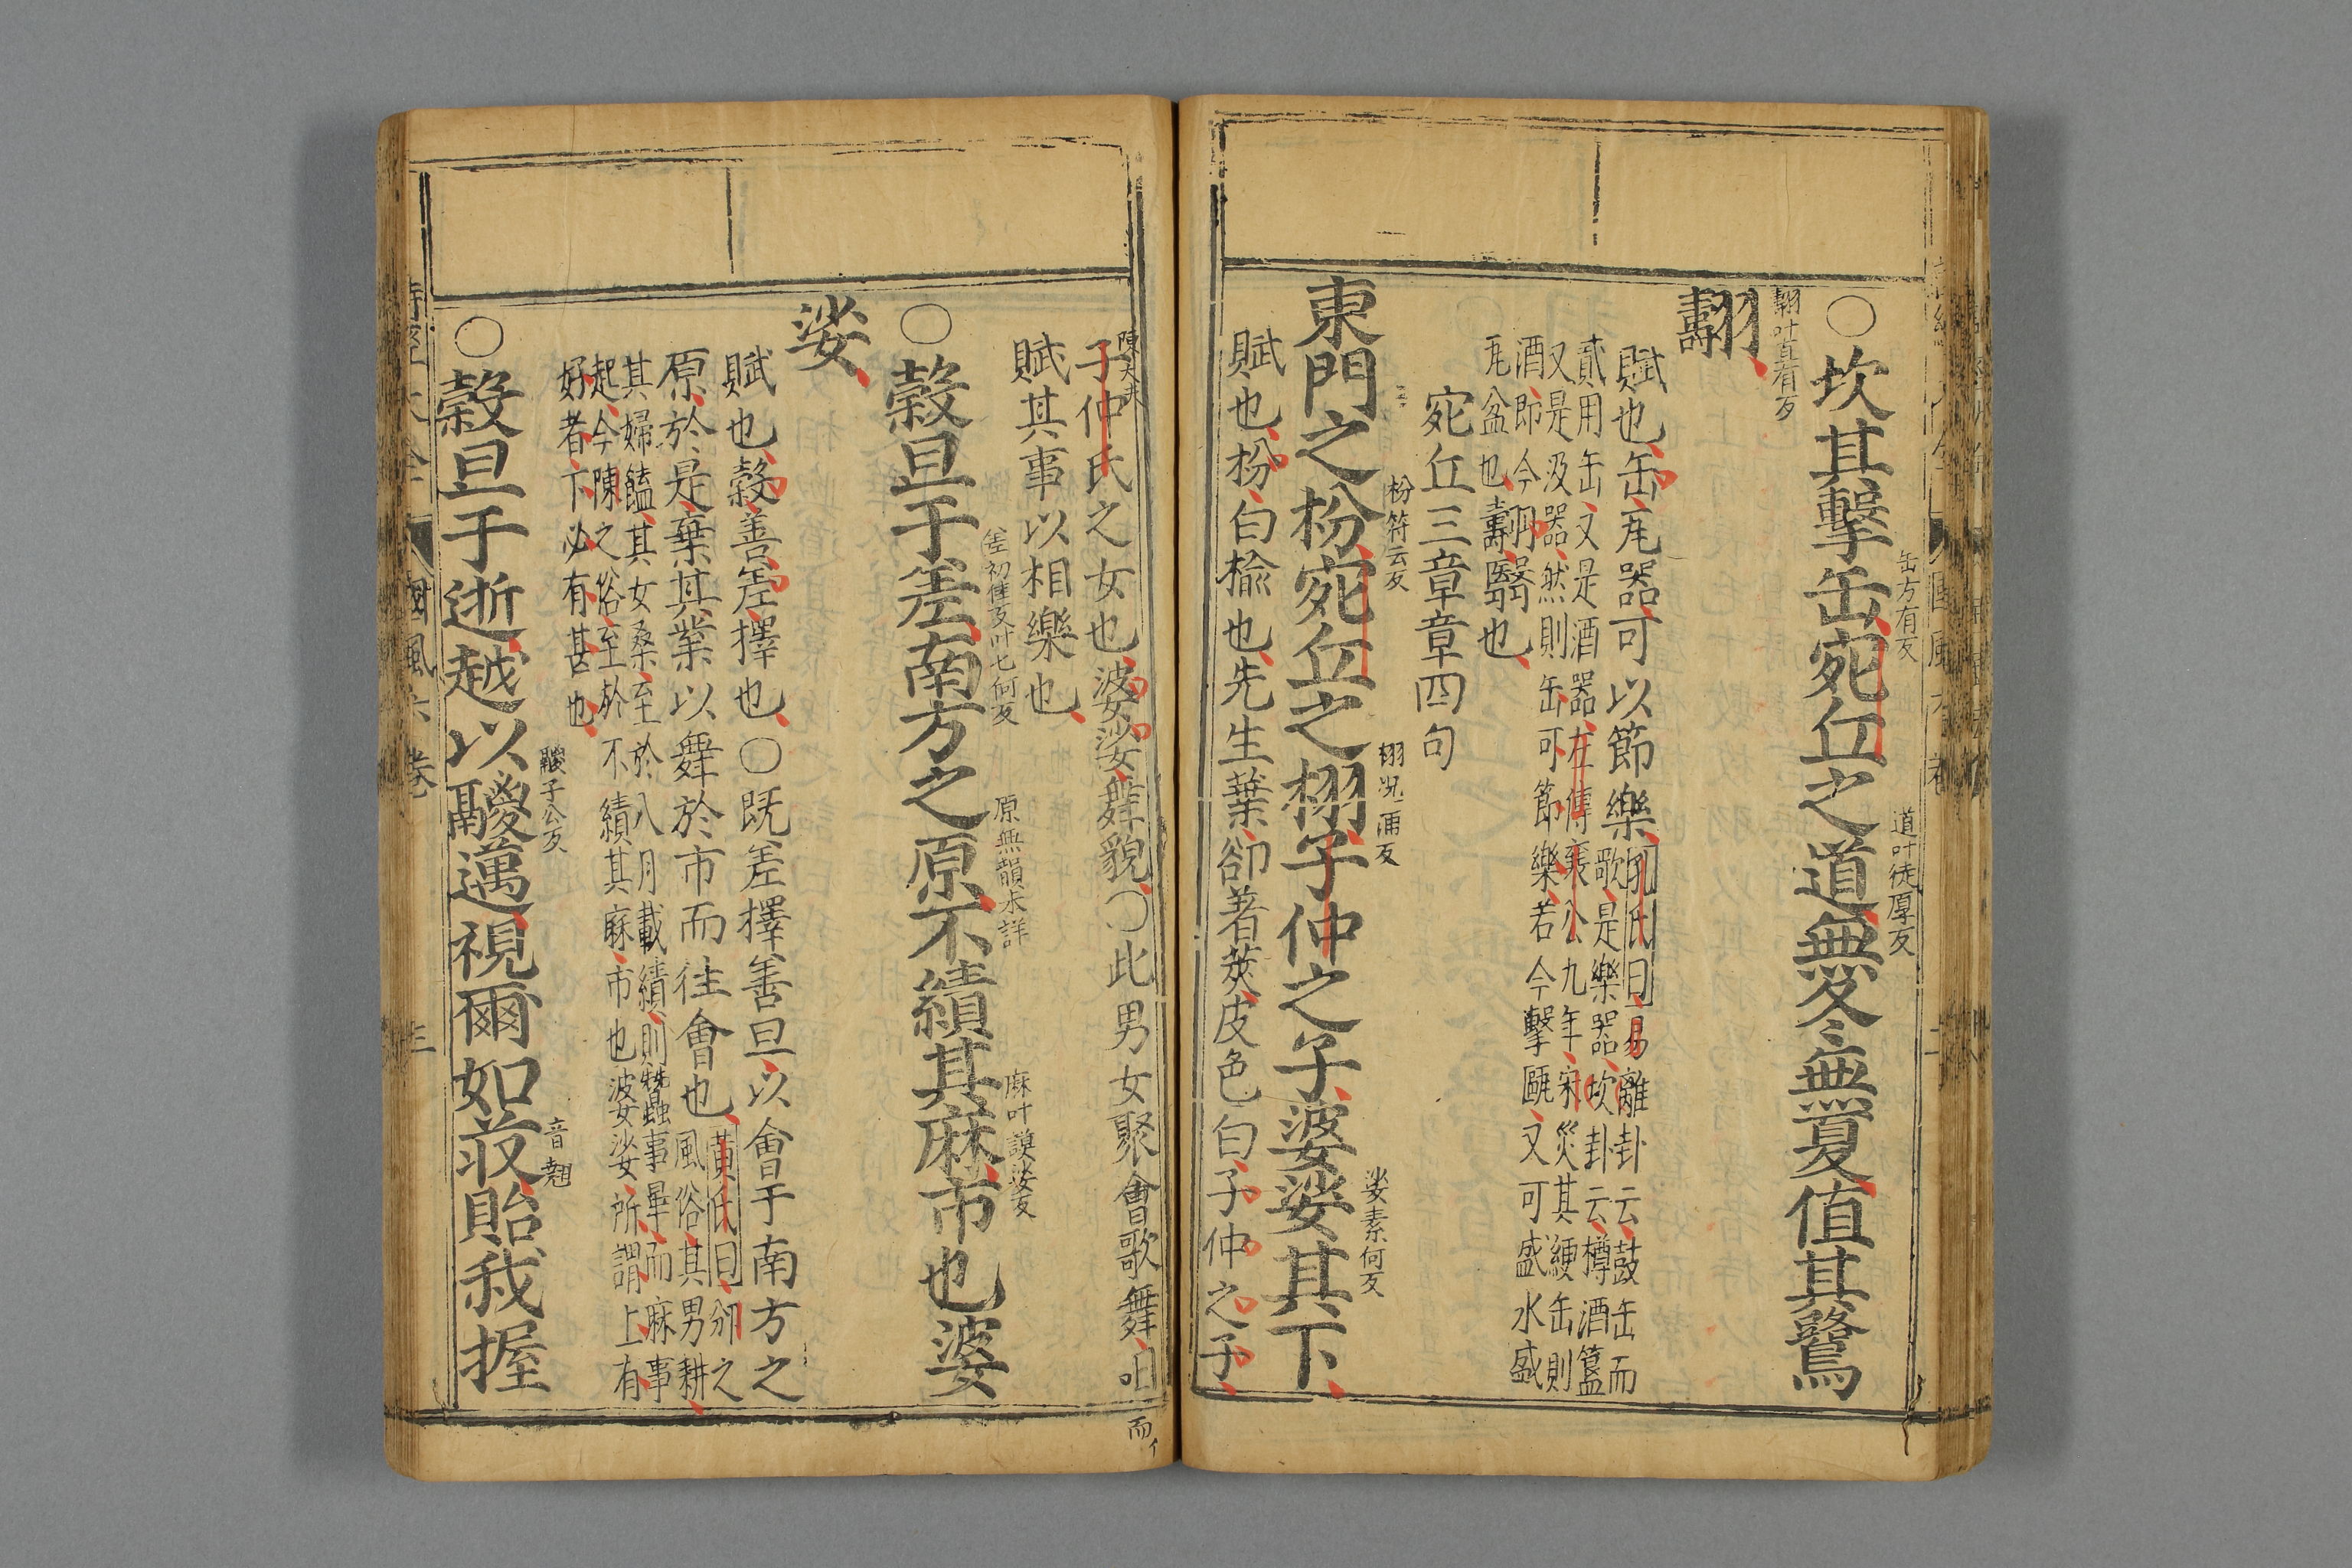 ○坎其擊缶宛丘之道無冬無夏值其鷺
缶方有反
道叶徒厚反
翿
翿叶直有反
賦也缶瓦器可以節樂孔氏曰易離卦云鼓缶而
歌是樂器坎卦云樽酒簋
貳用缶又是酒器左傳襄公九年宋災其綆缶則
又是汲器然則缶可節樂若今擊甌又可盛水盛
酒即今
瓦盆也翿翳也
宛丘三章章四句
東門之枌宛丘之栩子仲之子婆娑其下
枌符云反
栩况浦反
娑素何反
賦也枌白榆也先生葉卻著莢皮色白子仲之子
陳大夫
子仲氏之女也婆娑舞貌○此男女聚會歌舞
而
賦其事以相樂也
○穀旦于差南方之原不績其麻市也婆
差初佳反叶七何反
原無韻未詳
麻叶謨婆反
娑
賦也穀善差擇也○既差擇善旦以會于南方之
原於是棄其業以舞於市而往會也黃氏曰邠之
風俗其男耕
其婦饁其女桑至於八月載績則蠶事畢而麻事
起今陳之俗至於不績其麻市也婆娑所謂上有
好者下必有甚也
○穀旦于逝越以鬷邁視爾如荍貽我握
鬷子公反
音翹
國風六卷